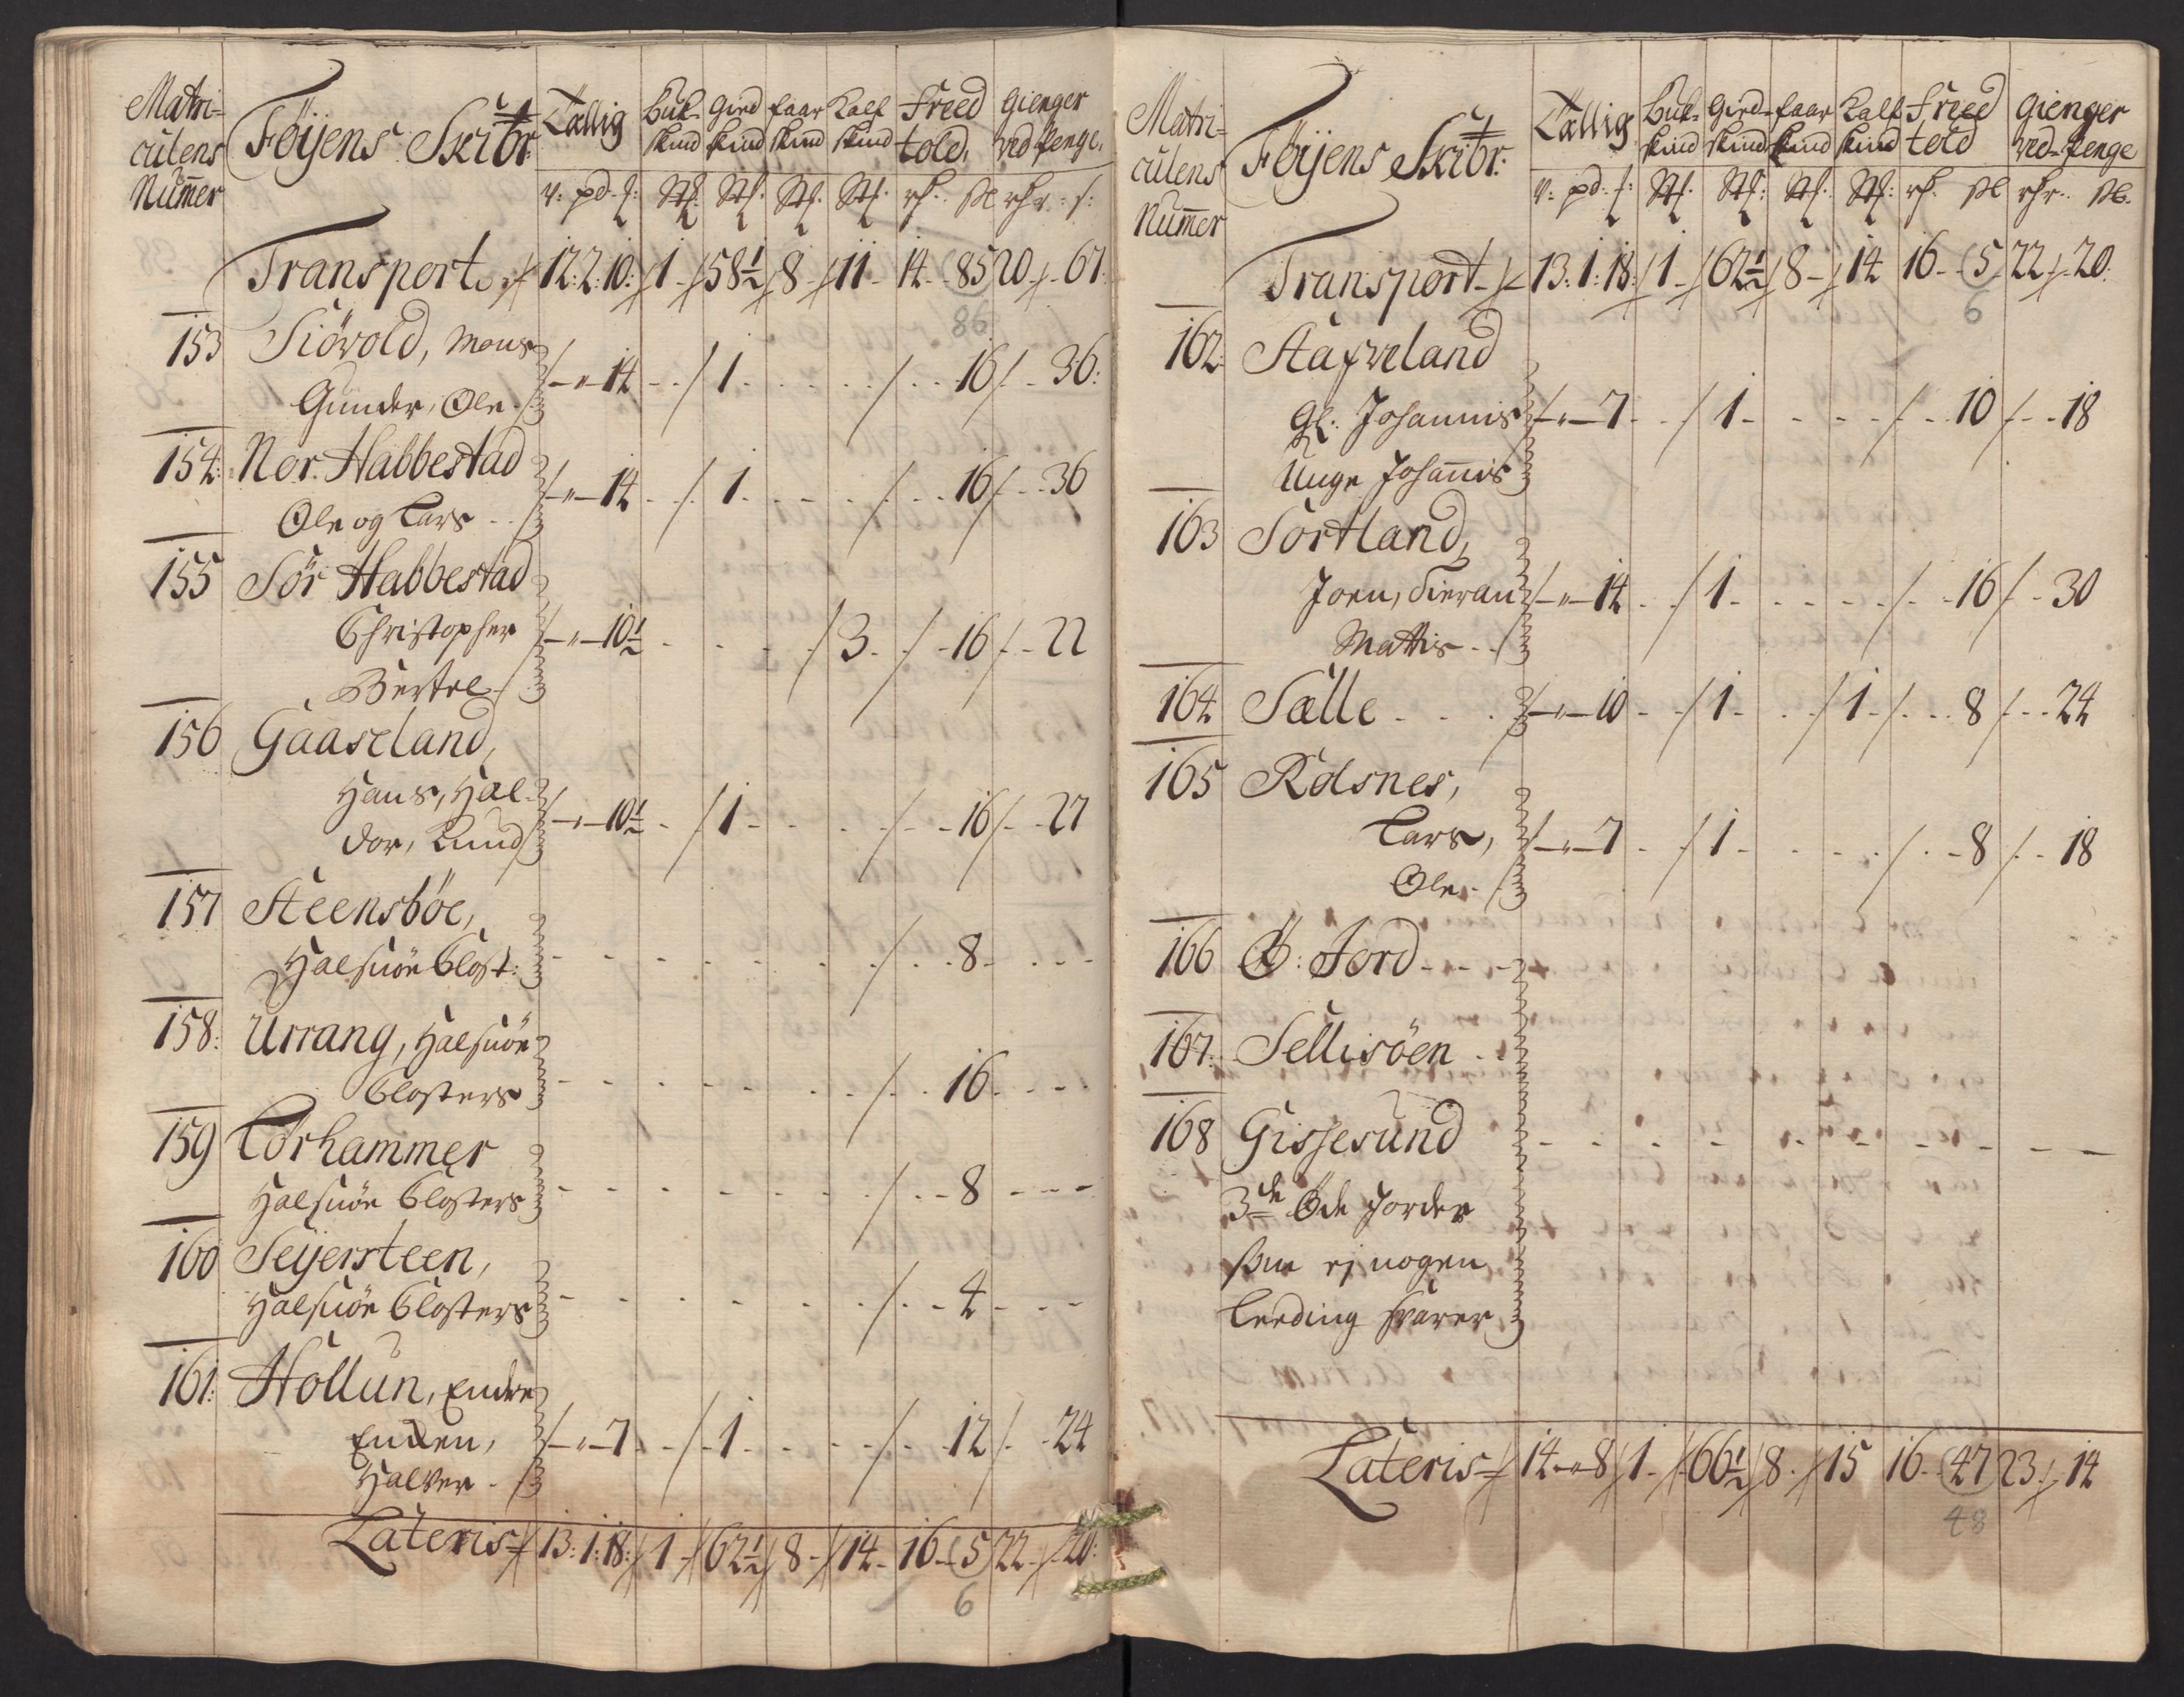 Matri-
culens
Nummer
Føÿens Skibr:
Tallig
Buk-
skind
Gied
skind
faar
skind
Kalf
skind
Freed
told.
Gienger
ved Penge.
v: pd: f: Stf: Stf: Stf. Stf: rf. Sl rhr: f:
Transport 12:2:10: 1 58½ 8 11 14 85 20 67
86
153 Siövold, Mons
Gunder, Ole 14 1 16 36:
154: Nor. Habbestad
Ole og Lars 14 1 16 36
155 Sör Habbestad
Christopher 10½ 3 16 22
Bertel
156 Gaaseland,
Hans, Hal-
dor, Knud 10½ 1 16 27
157 Steensböe,
Halsnöe Clost: 8
158: Urrang, Halsnöe
Closters 16
159 Torhammer
Halsnöe Closters 8
160 Seÿersteen,
Halsnöe Closters 4
161: Hollun, Endre
Enden, 7 1 12 24
Halver
Lateris 13:1:18: 1 62½ 8 14 16 5 22 20:
6
Matri-
culens
Nummer
Føÿens Skibr:
Tallig
Buk-
skind
Gied-
skind
faar
skind
Kalf
skind
Freed
told
Gienger
ved Penge
v: pd: f: Stf. Stf: Stf. Stf: rf. Sl rhr. Sl.
Transport 13:1:18: 1 62½ 8 14 16 5 22 20:
6
162: Stafveland
Gl: Johannis 7 1 10 18
Unge Johannis
163 Sortland,
Joen, 14 1 16 30
Mattis
164 Sælle 10 1 1 8 24
165 Rolsnes,
Lars, 7 1 8 18
Ole
166 Ö: Jord
167: Sellisöen
168 Gissesund
3de Öde Jorder
som ej nogen
Leeding svarer
Lateris 14 8 1 66½ 8 15 16 47 23 14
48